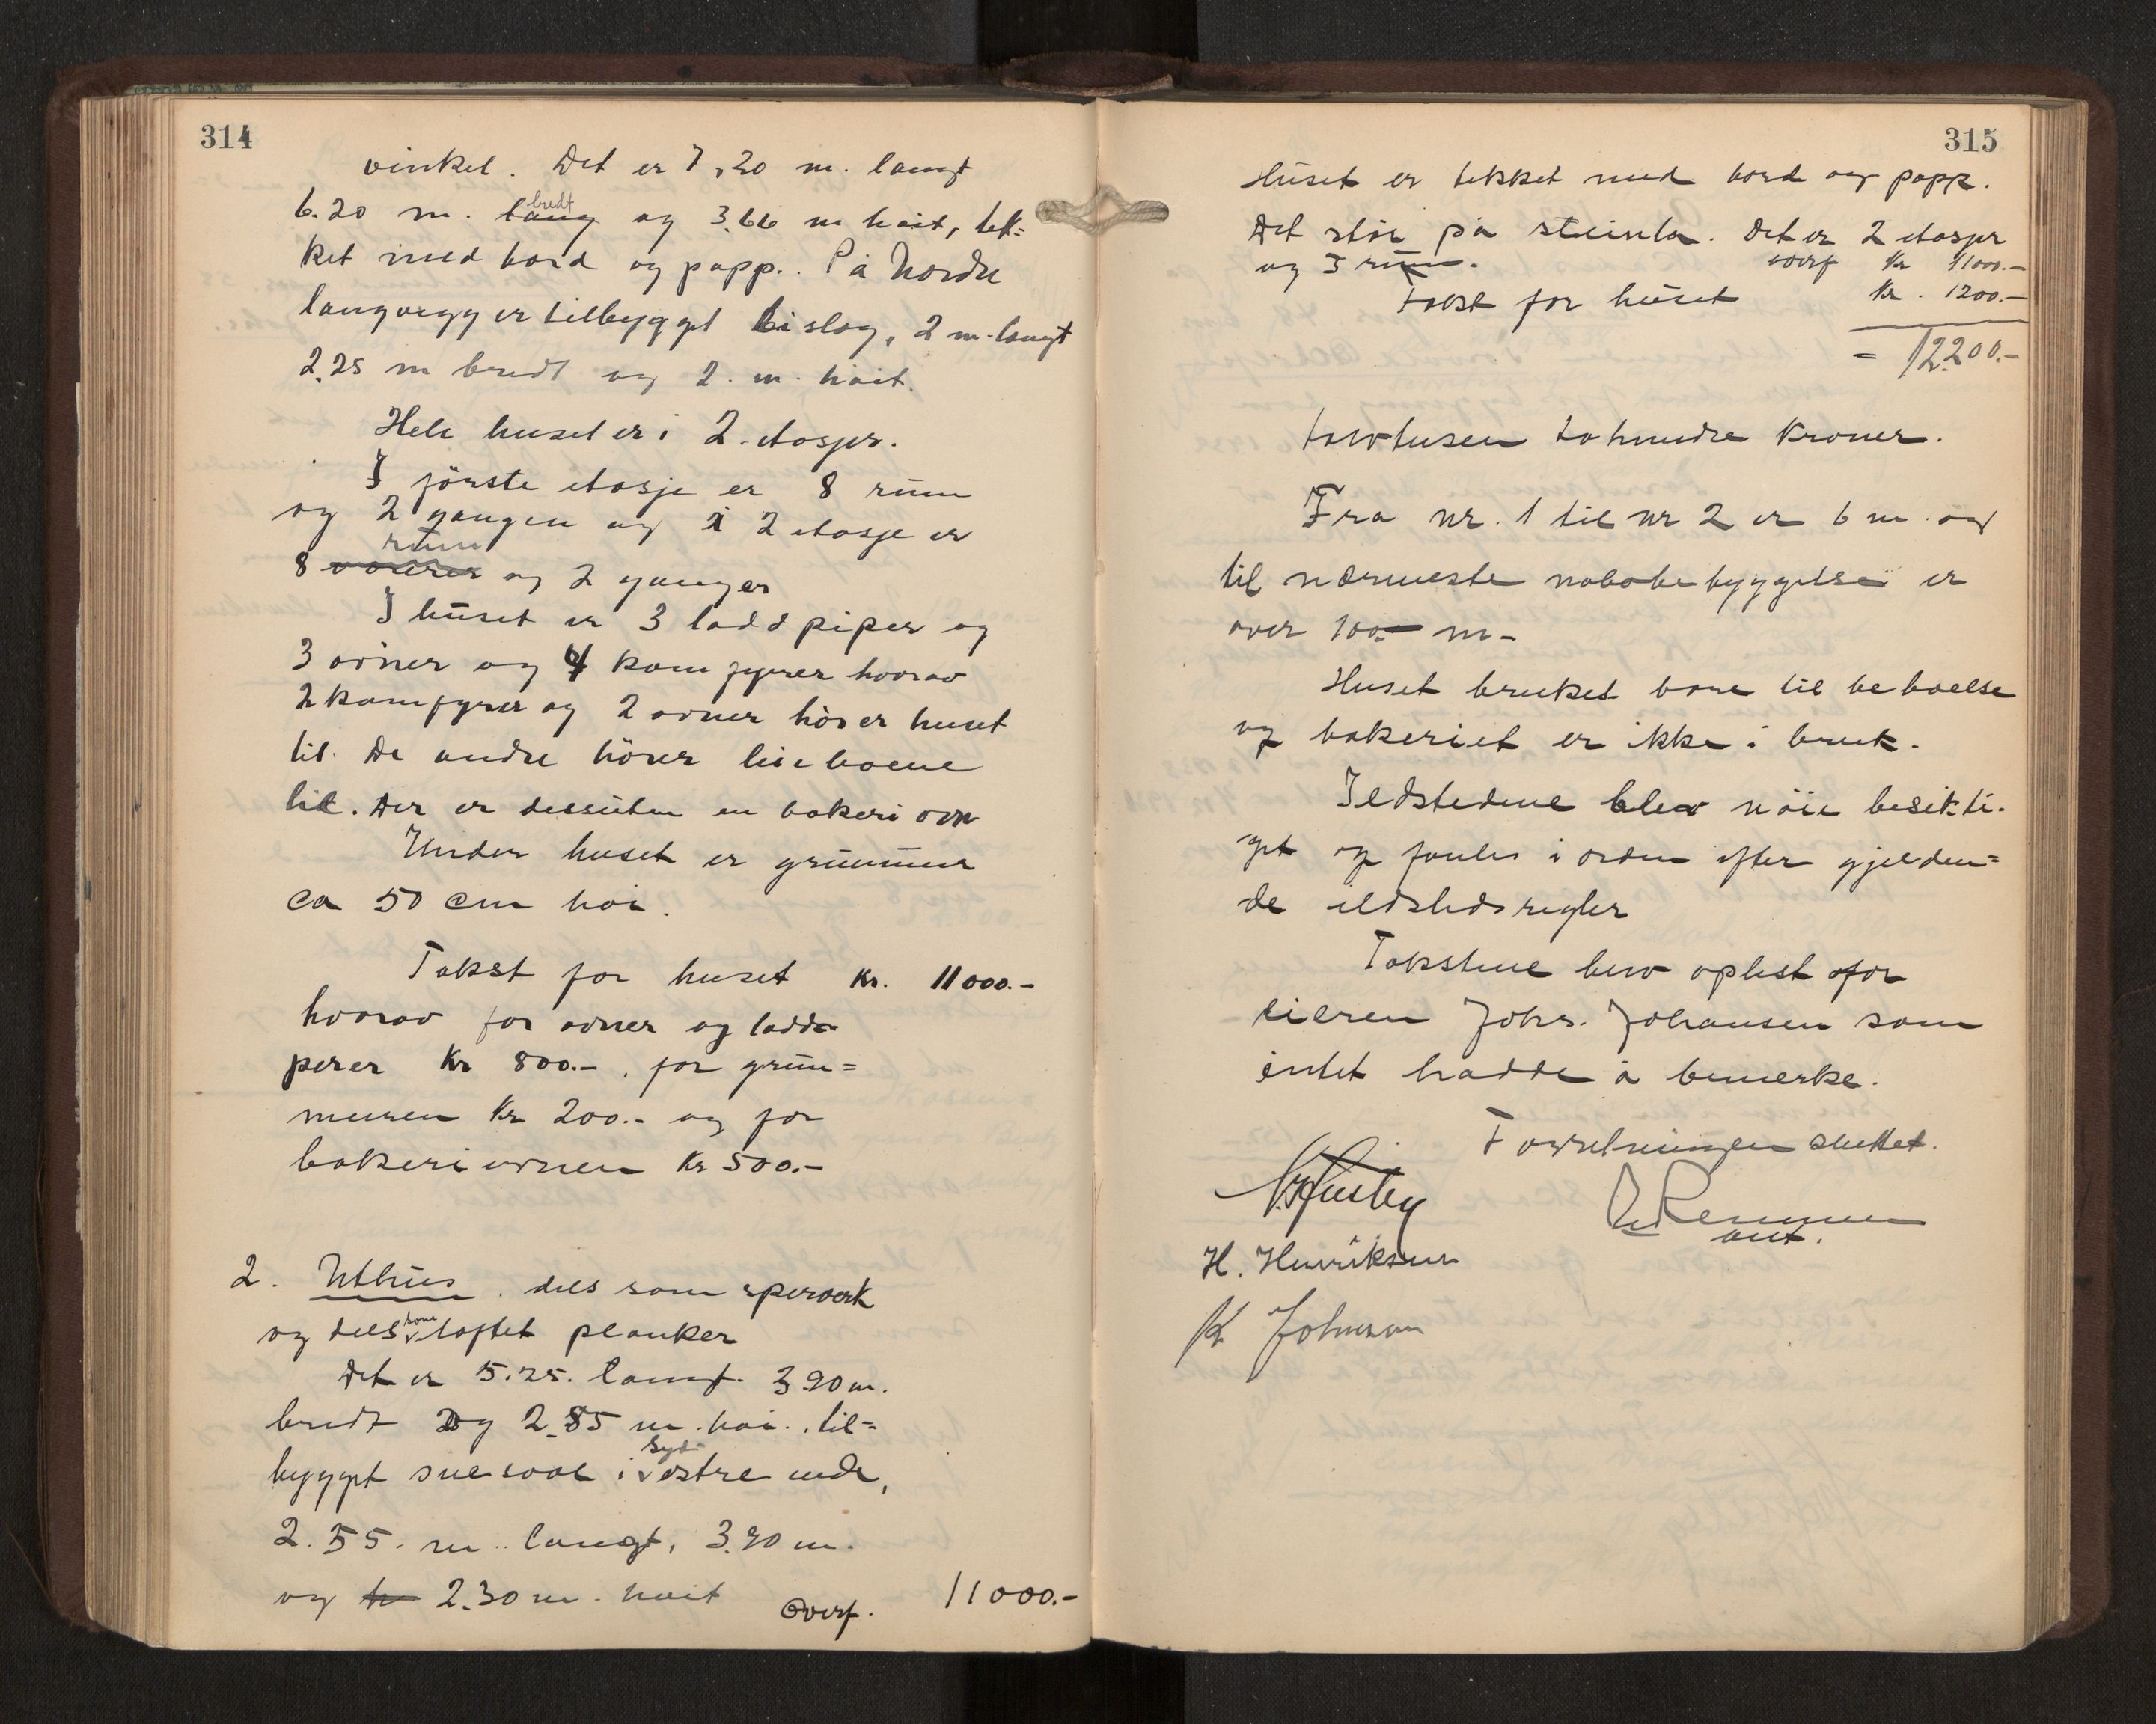 314
vinkel. Det er 7,20 m. langt
bredt
6.20 m. lang og 3.66 m høit, tek=
ket med bord og papp.. På Nordre
langvegg er tilbygget bislag, 2 m. langt
2.25 m bredt og 2. m. høit.
Hele huset er i 2. etasjer.
I förste etasje er 8 rum
og 2 ganger og i 2 etasje er
rum
8 og 2 ganger
I huset er 3 ladd piper og
3 ovner og 4 komfyrer hvorav
2 komfyrer og 2 ovner hörer huset
til. De andre hörer leieboene
til. Der er dessuten en bakeri ovn
Under huset er grunnmur
ca 50 cm höi.
Takst for huset Kr. 11000.-
hvorav for ovner og ladd
piper Kr 800.-, for grun=
muren Kr 200.- og for
bakeriovnen Kr 500.-
2. Uthus. dels som sperverk
som
og dels laftet planker
Det er 5.25. langt. 3.90 m.
bredt og 2.85 m. höi., til=
Syd
bygget sneskot i vestre ende,
2.55. m.. langt, 3.90 m.
og 2.30 m. höit Overf. 11000.-
315
Huset er tekket med bord og papp.
Det står på steinla. Det er 2 etasjer
og 3 rum. overf Kr 11000.-
takst for huset Kr. 1200.-
= 12200.-
tolvtusen tohundre Kroner.
Fra nr. 1 til nr 2 er 6 m. og
til nærmeste nabobebyggelse er
over 100.- m-
Huset bruket bare til beboelse
og bakeriet er ikke i bruk.
Ildstedene blev nöie besikti-
get og fantes i orden efter gjelden=
de ildstedsregler
Takstene blev oplest for
eieren Johs. Johansen som
intet hadde å bemerke.
Forretningen sluttet.
H. Henriksen
K Johnsen